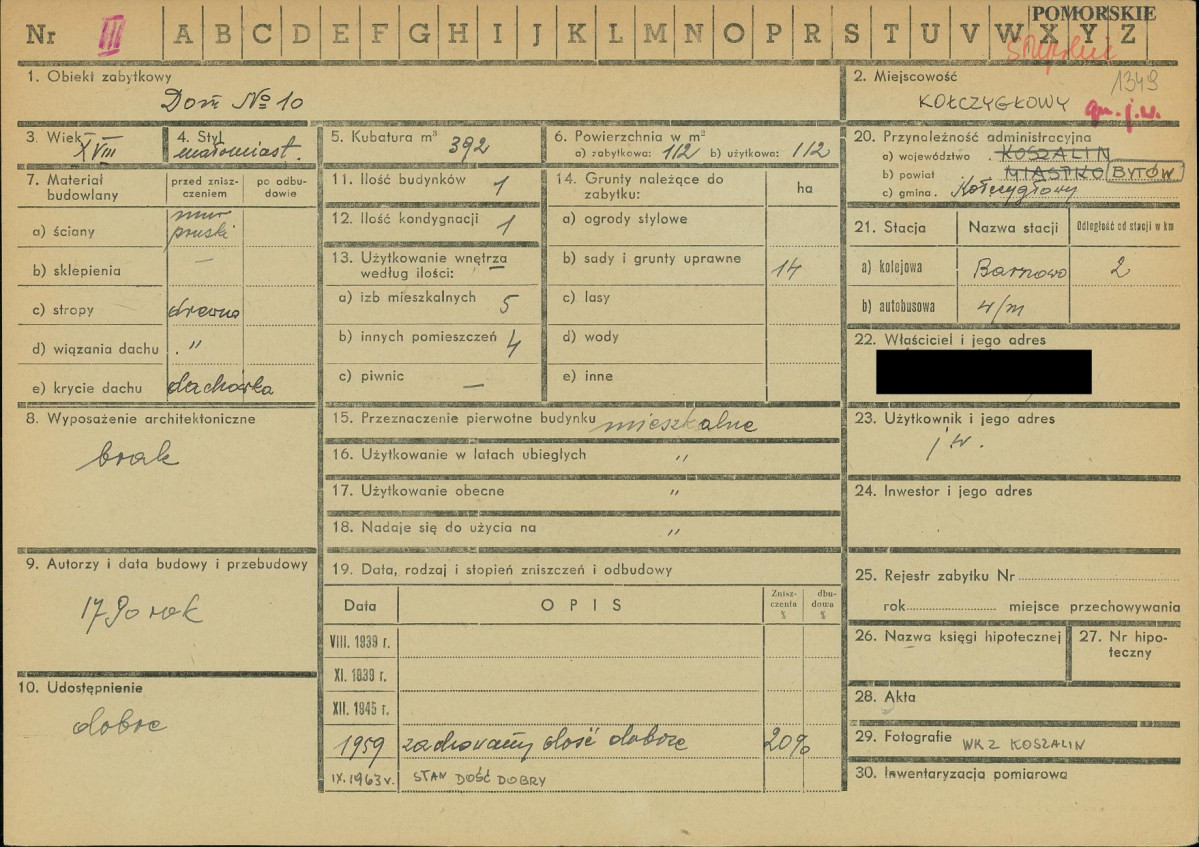 POMORSKIE
Nr III A B C D E F G H I J K L M N O P R S T U V W X Y Z
1. Obiekt zabytkowy
Dom № 10
2. Miejscowość 1349
KOŁCZYGŁOWY gm. j.w.
3. Wiek XVIII
4. Styl małomiast.
5. Kubatura m³ 392
6. Powierzchnia w m²
a) zabytkowa: 112 b) użytkowa: 112
7. Materiał budowlany
przed zniszczeniem
po odbudowie
a) ściany mur pruski
b) sklepienia —
c) stropy drewno
d) wiązania dachu . "
e) krycie dachu dachówka
8. Wyposażenie architektoniczne
brak
9. Autorzy i data budowy i przebudowy
1790 rok
10. Udostępnienie
dobre
11. Ilość budynków 1
12. Ilość kondygnacji 1
13. Użytkowanie wnętrza według ilości: —
a) izb mieszkalnych 5
b) innych pomieszczeń 4
c) piwnic —
14. Grunty należące do zabytku:
ha
a) ogrody stylowe
b) sady i grunty uprawne 14
c) lasy
d) wody
e) inne
15. Przeznaczenie pierwotne budynku mieszkalne
16. Użytkowanie w latach ubiegłych "
17. Użytkowanie obecne "
18. Nadaje się do użycia na "
19. Data, rodzaj i stopień zniszczeń i odbudowy
Data OPIS Zniszczenia % dbudowa %
VIII. 1939 r.
XI. 1939 r.
XII. 1945 r.
1959 zachowany dość dobrze 20%
IX. 1963 r. STAN DOŚĆ DOBRY
20. Przynależność administracyjna
a) województwo . KOSZALIN
b) powiat MIASTKO BYTÓW
c) gmina . Kołczygłowy
21. Stacja Nazwa stacji Odległość od stacji w km
a) kolejowa Barnowo 2
b) autobusowa w/m
22. Właściciel i jego adres
23. Użytkownik i jego adres
j w.
24. Inwestor i jego adres
25. Rejestr zabytku Nr
rok miejsce przechowywania
26. Nazwa księgi hipotecznej
27. Nr hipoteczny
28. Akta
29. Fotografie WKZ KOSZALIN
30. Inwentaryzacja pomiarowa